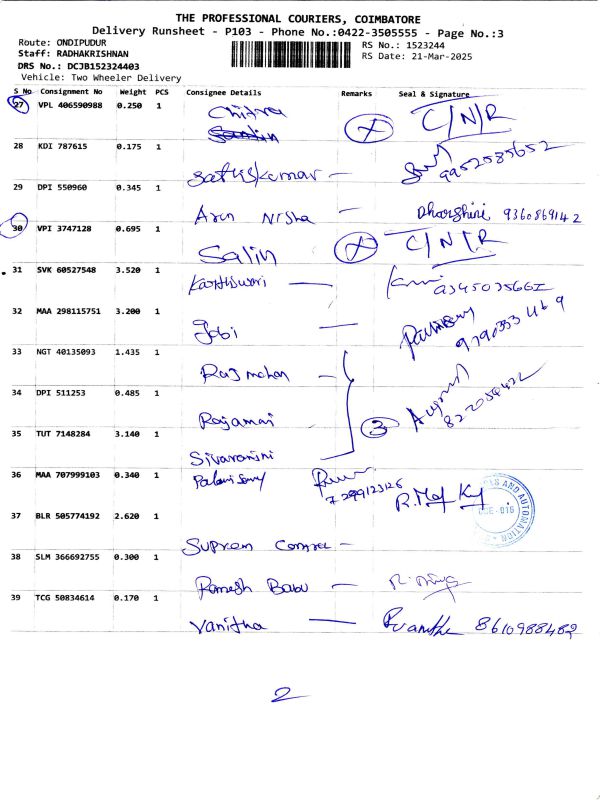 THE PROFESSIONAL COURIERS, COIMBATORE
Delivery Runsheet - P103 - Phone No.:0422-3505555 - Page No.:3
Route: ONDIPUDUR
RS No.: 1523244
Staff: RADHAKRISHNAN
RS Date: 21-Mar-2025
DRS No.: DCJB152324403
Vehicle: Two Wheeler Delivery
S No Consignment No Weight PCS Consignee Details Remarks Seal & Signature
27 VPL 406590988 0.250 1 Chitra X C/N/R
28 KDI 787615 0.175 1 Sathiskumar - 9952585652
29 DPI 550960 0.345 1 Arun Nisha - Dharshini 9360869142
30 VPI 3747128 0.695 1 Salin X C/N/R
31 SVK 60527548 3.520 1 Karthiswari -
32 MAA 298115751 3.200 1 Jobi - Palanisamy
33 NGT 40135093 1.435 1 Rajmohan -
34 DPI 511253 0.485 1 Rajamani 3
35 TUT 7148284 3.140 1 Sivaranjini
36 MAA 707999103 0.340 1 Palanisamy 7299123126
37 BLR 505774192 2.620 1 Suprem Control -
38 SLM 366692755 0.300 1 Ramesh Babu -
39 TCG 50834614 0.170 1 Vanitha - 8610988482
2